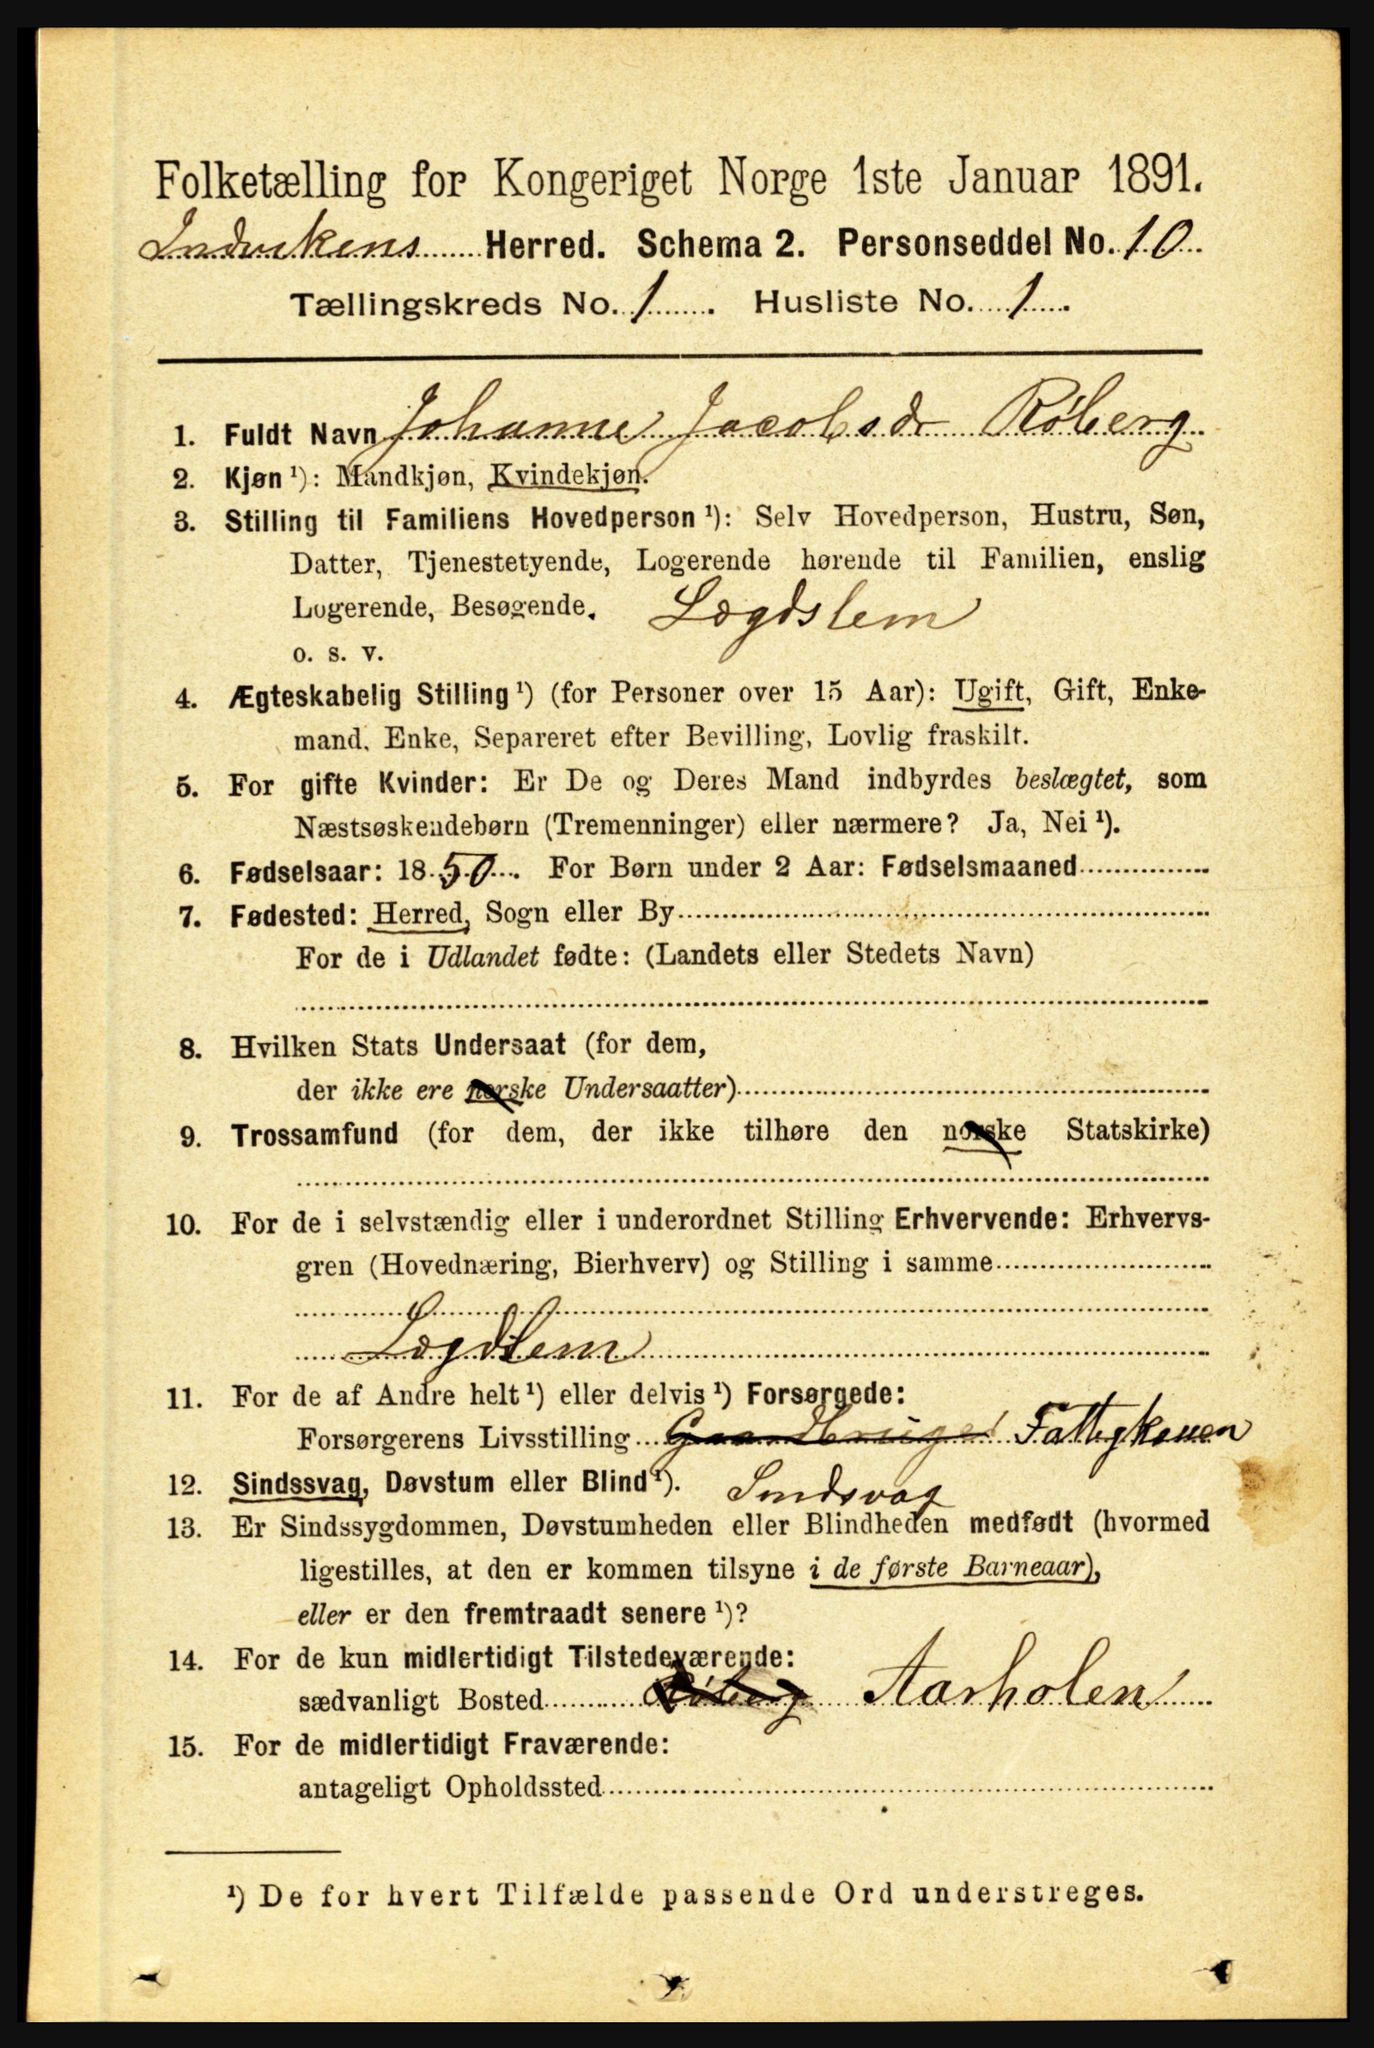 Folketælling for Kongeriget Norge 1ste Januar 1891.
Indvikens Herred. Schema 2. Personseddel No. 10
Tællingskreds No. 1. Husliste No. 1.
1. Fuldt Navn Johanne Jacobsdr Røberg
2. Kjøn ¹): Mandkjøn, Kvindekjøn.
3. Stilling til Familiens Hovedperson ¹): Selv Hovedperson, Hustru, Søn,
Datter, Tjenestetyende, Logerende hørende til Familien, enslig
Logerende, Besøgende. Lægdslem
o. s. v.
4. Ægteskabelig Stilling ¹) (for Personer over 15 Aar): Ugift, Gift, Enke-
mand, Enke, Separeret efter Bevilling, Lovlig fraskilt.
5. For gifte Kvinder: Er De og Deres Mand indbyrdes beslægtet, som
Næstsøskendebørn (Tremenninger) eller nærmere? Ja, Nei ¹).
6. Fødselsaar: 1850. For Børn under 2 Aar: Fødselsmaaned
7. Fødested: Herred, Sogn eller By
For de i Udlandet fødte: (Landets eller Stedets Navn)
8. Hvilken Stats Undersaat (for dem,
der ikke ere norske Undersaatter)
9. Trossamfund (for dem, der ikke tilhøre den norske Statskirke)
10. For de i selvstændig eller i underordnet Stilling Erhvervende: Erhvervs-
gren (Hovednæring, Bierhverv) og Stilling i samme
Lægdslem
11. For de af Andre helt ¹) eller delvis ¹) Forsørgede:
Forsørgerens Livsstilling Gaardbruger Fattigkassen
12. Sindssvag, Døvstum eller Blind ¹). Sindsvag
13. Er Sindssygdommen, Døvstumheden eller Blindheden medfødt (hvormed
ligestilles, at den er kommen tilsyne i de første Barneaar),
eller er den fremtraadt senere ¹)?
14. For de kun midlertidigt Tilstedeværende:
sædvanligt Bosted Røberg Aarholen
15. For de midlertidigt Fraværende:
antageligt Opholdssted
¹) De for hvert Tilfælde passende Ord understreges.